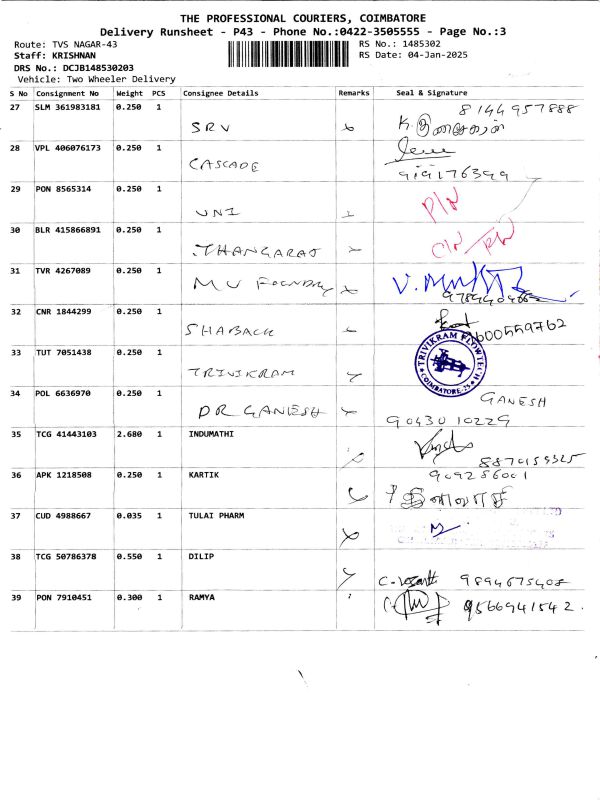 THE PROFESSIONAL COURIERS, COIMBATORE
Delivery Runsheet - P43 - Phone No.:0422-3505555 - Page No.:3
Route: TVS NAGAR-43 RS No.: 1485302
Staff: KRISHNAN RS Date: 04-Jan-2025
DRS No.: DCJB148530203
Vehicle: Two Wheeler Delivery
S No Consignment No Weight PCS Consignee Details Remarks Seal & Signature
27 SLM 361983181 0.250 1 SRV 8144957888
28 VPL 406076173 0.250 1 CASCADE 9191176399
29 PON 8565314 0.250 1 UNI P/N
30 BLR 415866891 0.250 1 THANGARAJ
31 TVR 4267089 0.250 1 MV FOUNDRY
32 CNR 1844299 0.250 1 SHABACK 9600559762
33 TUT 7051438 0.250 1 TRIVIKRAM TRIVIKRAM FLOWTECH COIMBATORE
34 POL 6636970 0.250 1 DR GANESH GANESH
90430 10229
35 TCG 41443103 2.680 1 INDUMATHI 8870159325
36 APK 1218508 0.250 1 KARTIK 909286001
37 CUD 4988667 0.035 1 TULAI PHARM
38 TCG 50786378 0.550 1 DILIP 9894675408
39 PON 7910451 0.300 1 RAMYA 9566941542.